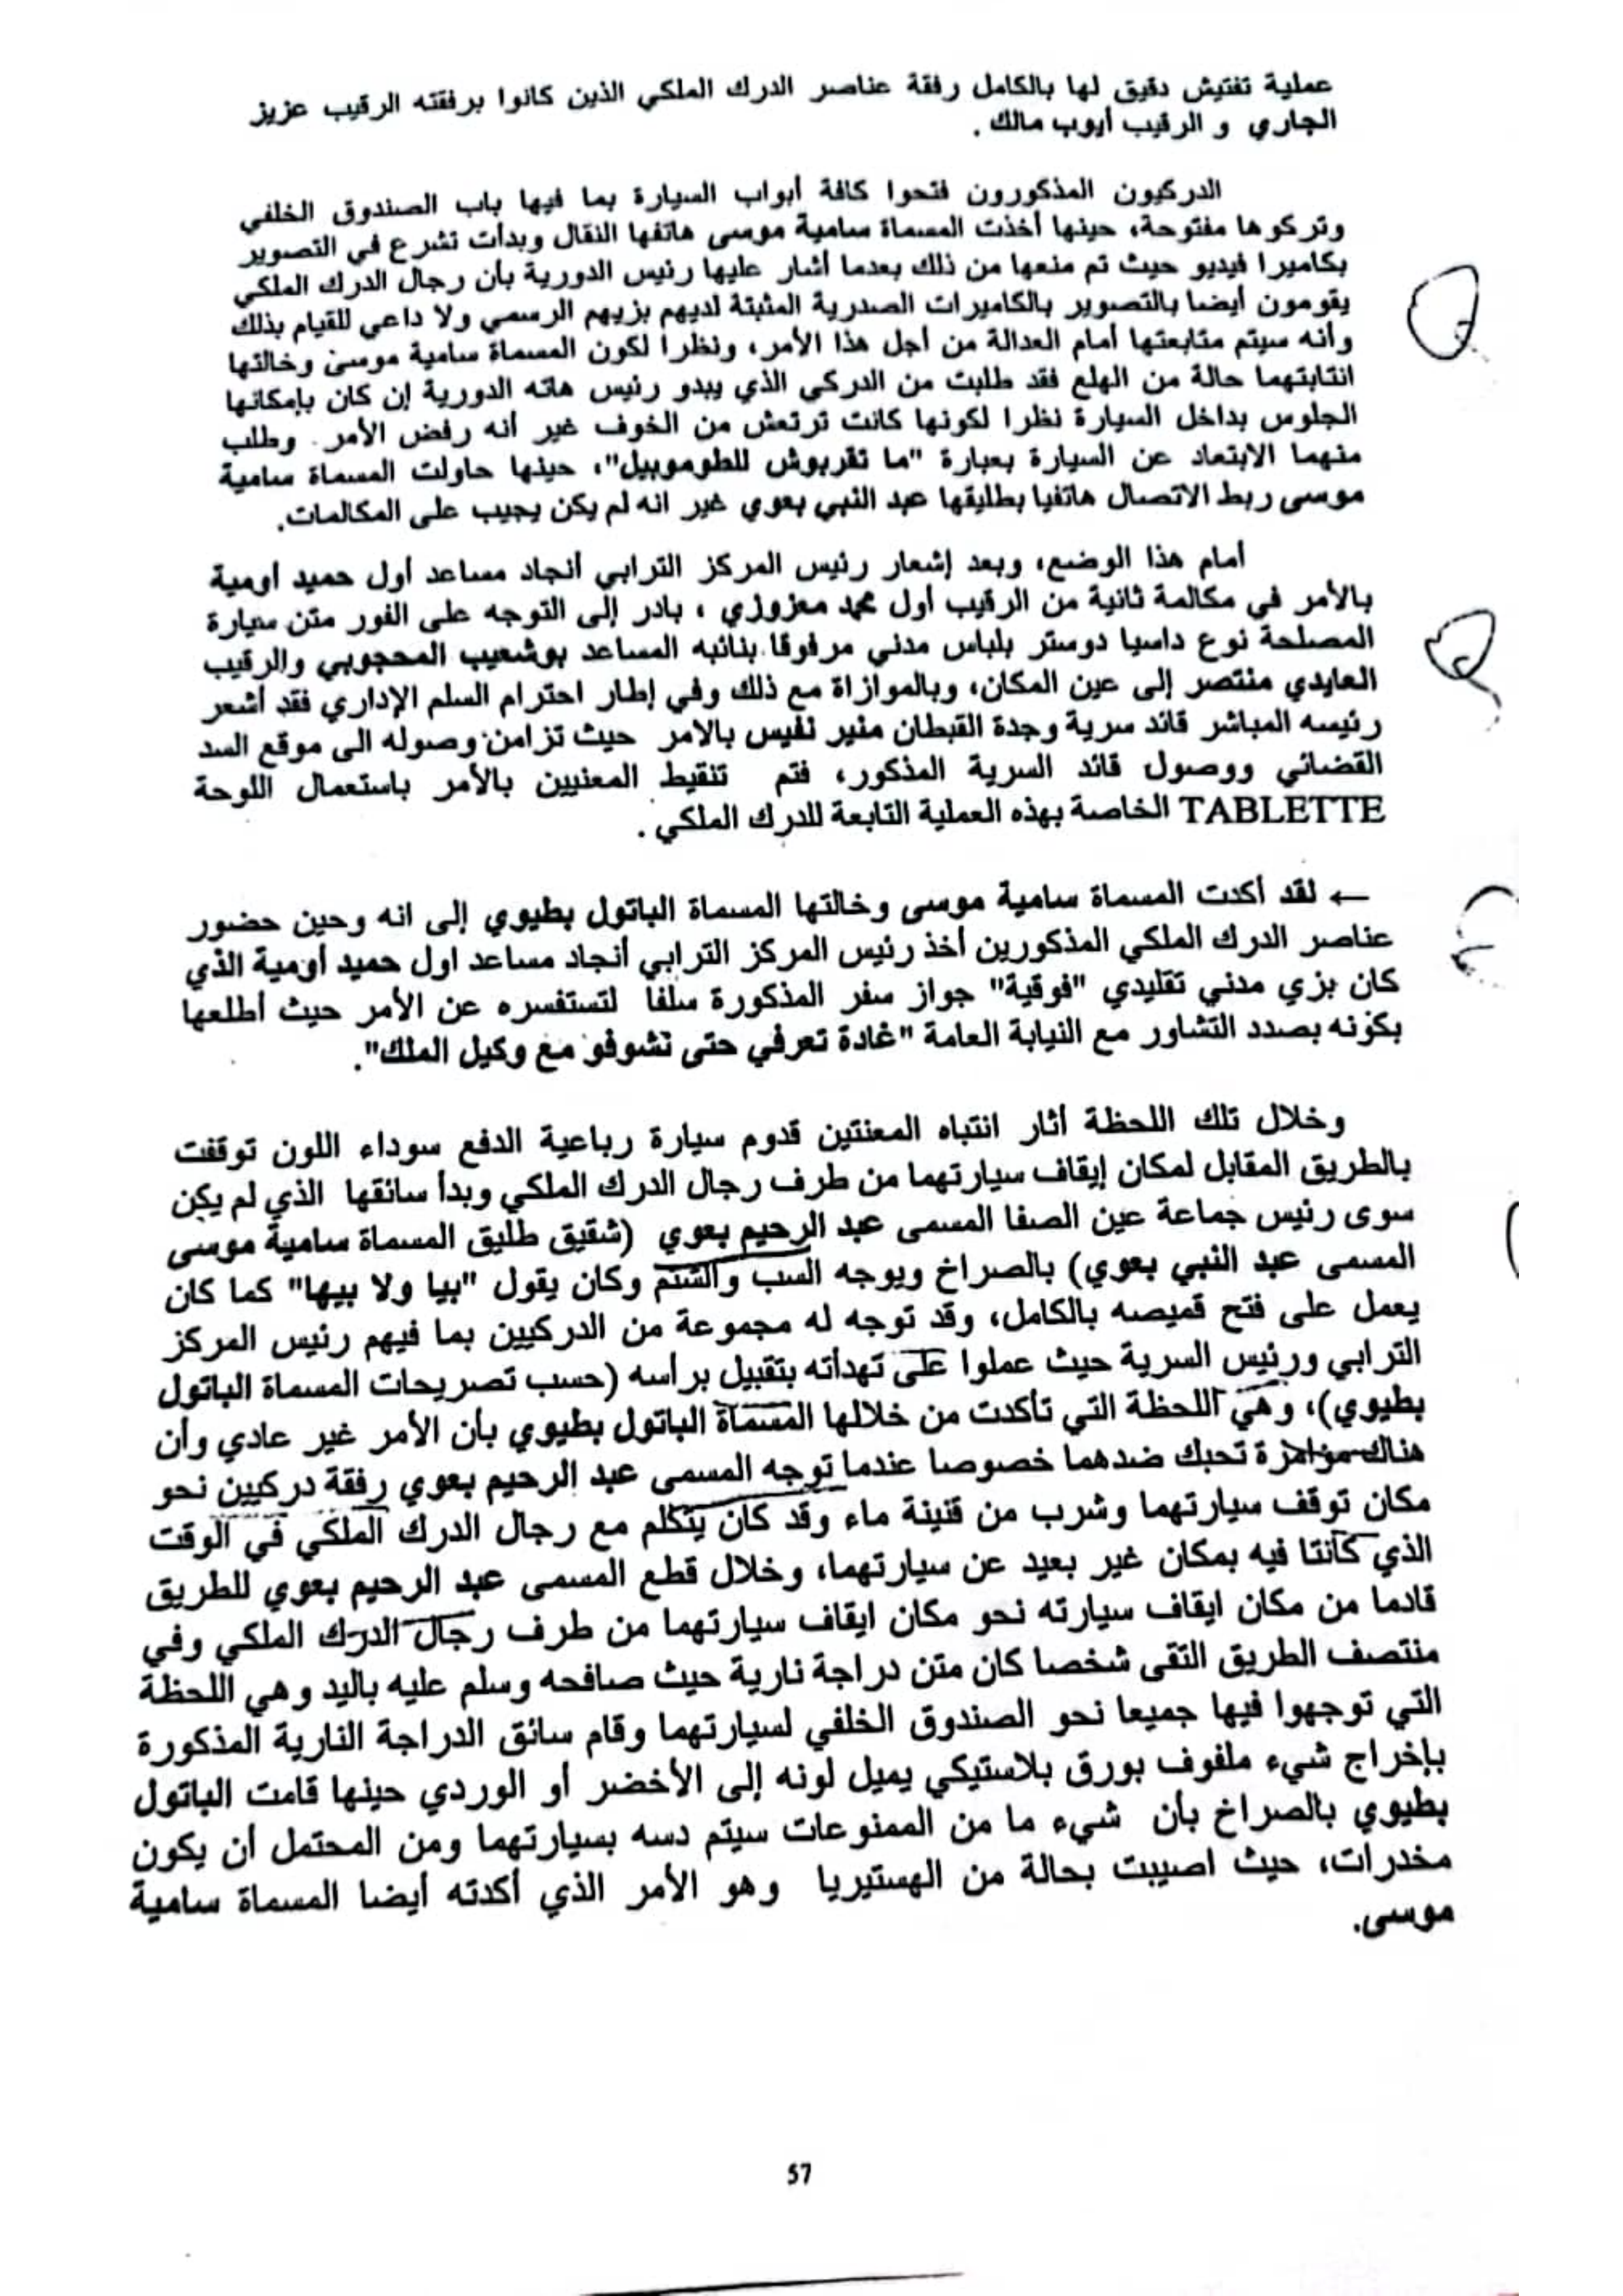 عملية تفتيش دقيق لها بالكامل رفقة عناصر الدرك الملكي الذين كانوا برفقته الرقيب عزيز
الجاري و الرقيب أيوب مالك .
الدركيون المذكورون فتحوا كافة أبواب السيارة بما فيها باب الصندوق الخلفي
وتركوها مفتوحة، حينها أخذت المسماة سامية موسى هاتفها النقال وبدأت تشرع في التصوير
بكاميرا فيديو حيث تم منعها من ذلك بعدما أشار عليها رئيس الدورية بأن رجال الدرك الملكي
يقومون أيضا بالتصوير بالكاميرات الصدرية المثبتة لديهم بزيهم الرسمي ولا داعي للقيام بذلك
وأنه سيتم متابعتها أمام العدالة من أجل هذا الأمر، ونظرا لكون المسماة سامية موسى وخالتها
انتابتهما حالة من الهلع فقد طلبت من الدركي الذي يبدو رئيس هاته الدورية إن كان بإمكانها
الجلوس بداخل السيارة نظرا لكونها كانت ترتعش من الخوف غير أنه رفض الأمر. وطلب
منهما الابتعاد عن السيارة بعبارة "ما تقربوش للطوموبيل"، حينها حاولت المسماة سامية
موسى ربط الاتصال هاتفيا بطليقها عبد النبي بعوي غير انه لم يكن يجيب على المكالمات.
أمام هذا الوضع، وبعد إشعار رئيس المركز الترابي أنجاد مساعد أول حميد أومية
بالأمر في مكالمة ثانية من الرقيب أول محمد معزوزي ، بادر إلى التوجه على الفور متن سيارة
المصلحة نوع داسيا دوستر بلباس مدني مرفوقا بنائبه المساعد بوشعيب المحجوبي والرقيب
العايدي منتصر إلى عين المكان، وبالموازاة مع ذلك وفي إطار احترام السلم الإداري فقد أشعر
رئيسه المباشر قائد سرية وجدة القبطان منير نفيس بالامر حيث تزامن وصوله الى موقع السد
القضائي ووصول قائد السرية المذكور، فتم تنقيط المعنيين بالأمر باستعمال اللوحة
TABLETTE الخاصة بهذه العملية التابعة للدرك الملكي .
← لقد أكدت المسماة سامية موسى وخالتها المسماة الباتول بطيوي إلى انه وحين حضور
عناصر الدرك الملكي المذكورين أخذ رئيس المركز الترابي أنجاد مساعد اول حميد أومية الذي
كان بزي مدني تقليدي "فوقية" جواز سفر المذكورة سلفا لتستفسره عن الأمر حيث أطلعها
بكونه بصدد التشاور مع النيابة العامة "غادة تعرفي حتى نشوفو مع وكيل الملك".
وخلال تلك اللحظة أثار انتباه المعنتين قدوم سيارة رباعية الدفع سوداء اللون توقفت
بالطريق المقابل لمكان إيقاف سيارتهما من طرف رجال الدرك الملكي وبدأ سائقها الذي لم يكن
سوى رئيس جماعة عين الصفا المسمى عبد الرحيم بعوي (شقيق طليق المسماة سامية موسى
المسمى عبد النبي بعوي) بالصراخ ويوجه السب والشتم وكان يقول "بيا ولا بيها" كما كان
يعمل على فتح قميصه بالكامل، وقد توجه له مجموعة من الدركيين بما فيهم رئيس المركز
الترابي ورئيس السرية حيث عملوا على تهدأته بتقبيل برأسه (حسب تصريحات المسماة الباتول
بطيوي)، وهي اللحظة التي تأكدت من خلالها المسماة الباتول بطيوي بأن الأمر غير عادي وأن
هناك مؤامرة تحبك ضدهما خصوصا عندما توجه المسمى عبد الرحيم بعوي رفقة دركيين نحو
مكان توقف سيارتهما وشرب من قنينة ماء وقد كان يتكلم مع رجال الدرك الملكي في الوقت
الذي كانتا فيه بمكان غير بعيد عن سيارتهما، وخلال قطع المسمى عبد الرحيم بعوي للطريق
قادما من مكان ايقاف سيارته نحو مكان ايقاف سيارتهما من طرف رجال الدرك الملكي وفي
منتصف الطريق التقى شخصا كان متن دراجة نارية حيث صافحه وسلم عليه باليد وهي اللحظة
التي توجهوا فيها جميعا نحو الصندوق الخلفي لسيارتهما وقام سائق الدراجة النارية المذكورة
بإخراج شيء ملفوف بورق بلاستيكي يميل لونه إلى الأخضر أو الوردي حينها قامت الباتول
بطيوي بالصراخ بأن شيء ما من الممنوعات سيتم دسه بسيارتهما ومن المحتمل أن يكون
مخدرات، حيث اصيبت بحالة من الهستيريا وهو الأمر الذي أكدته أيضا المسماة سامية
موسى.
57